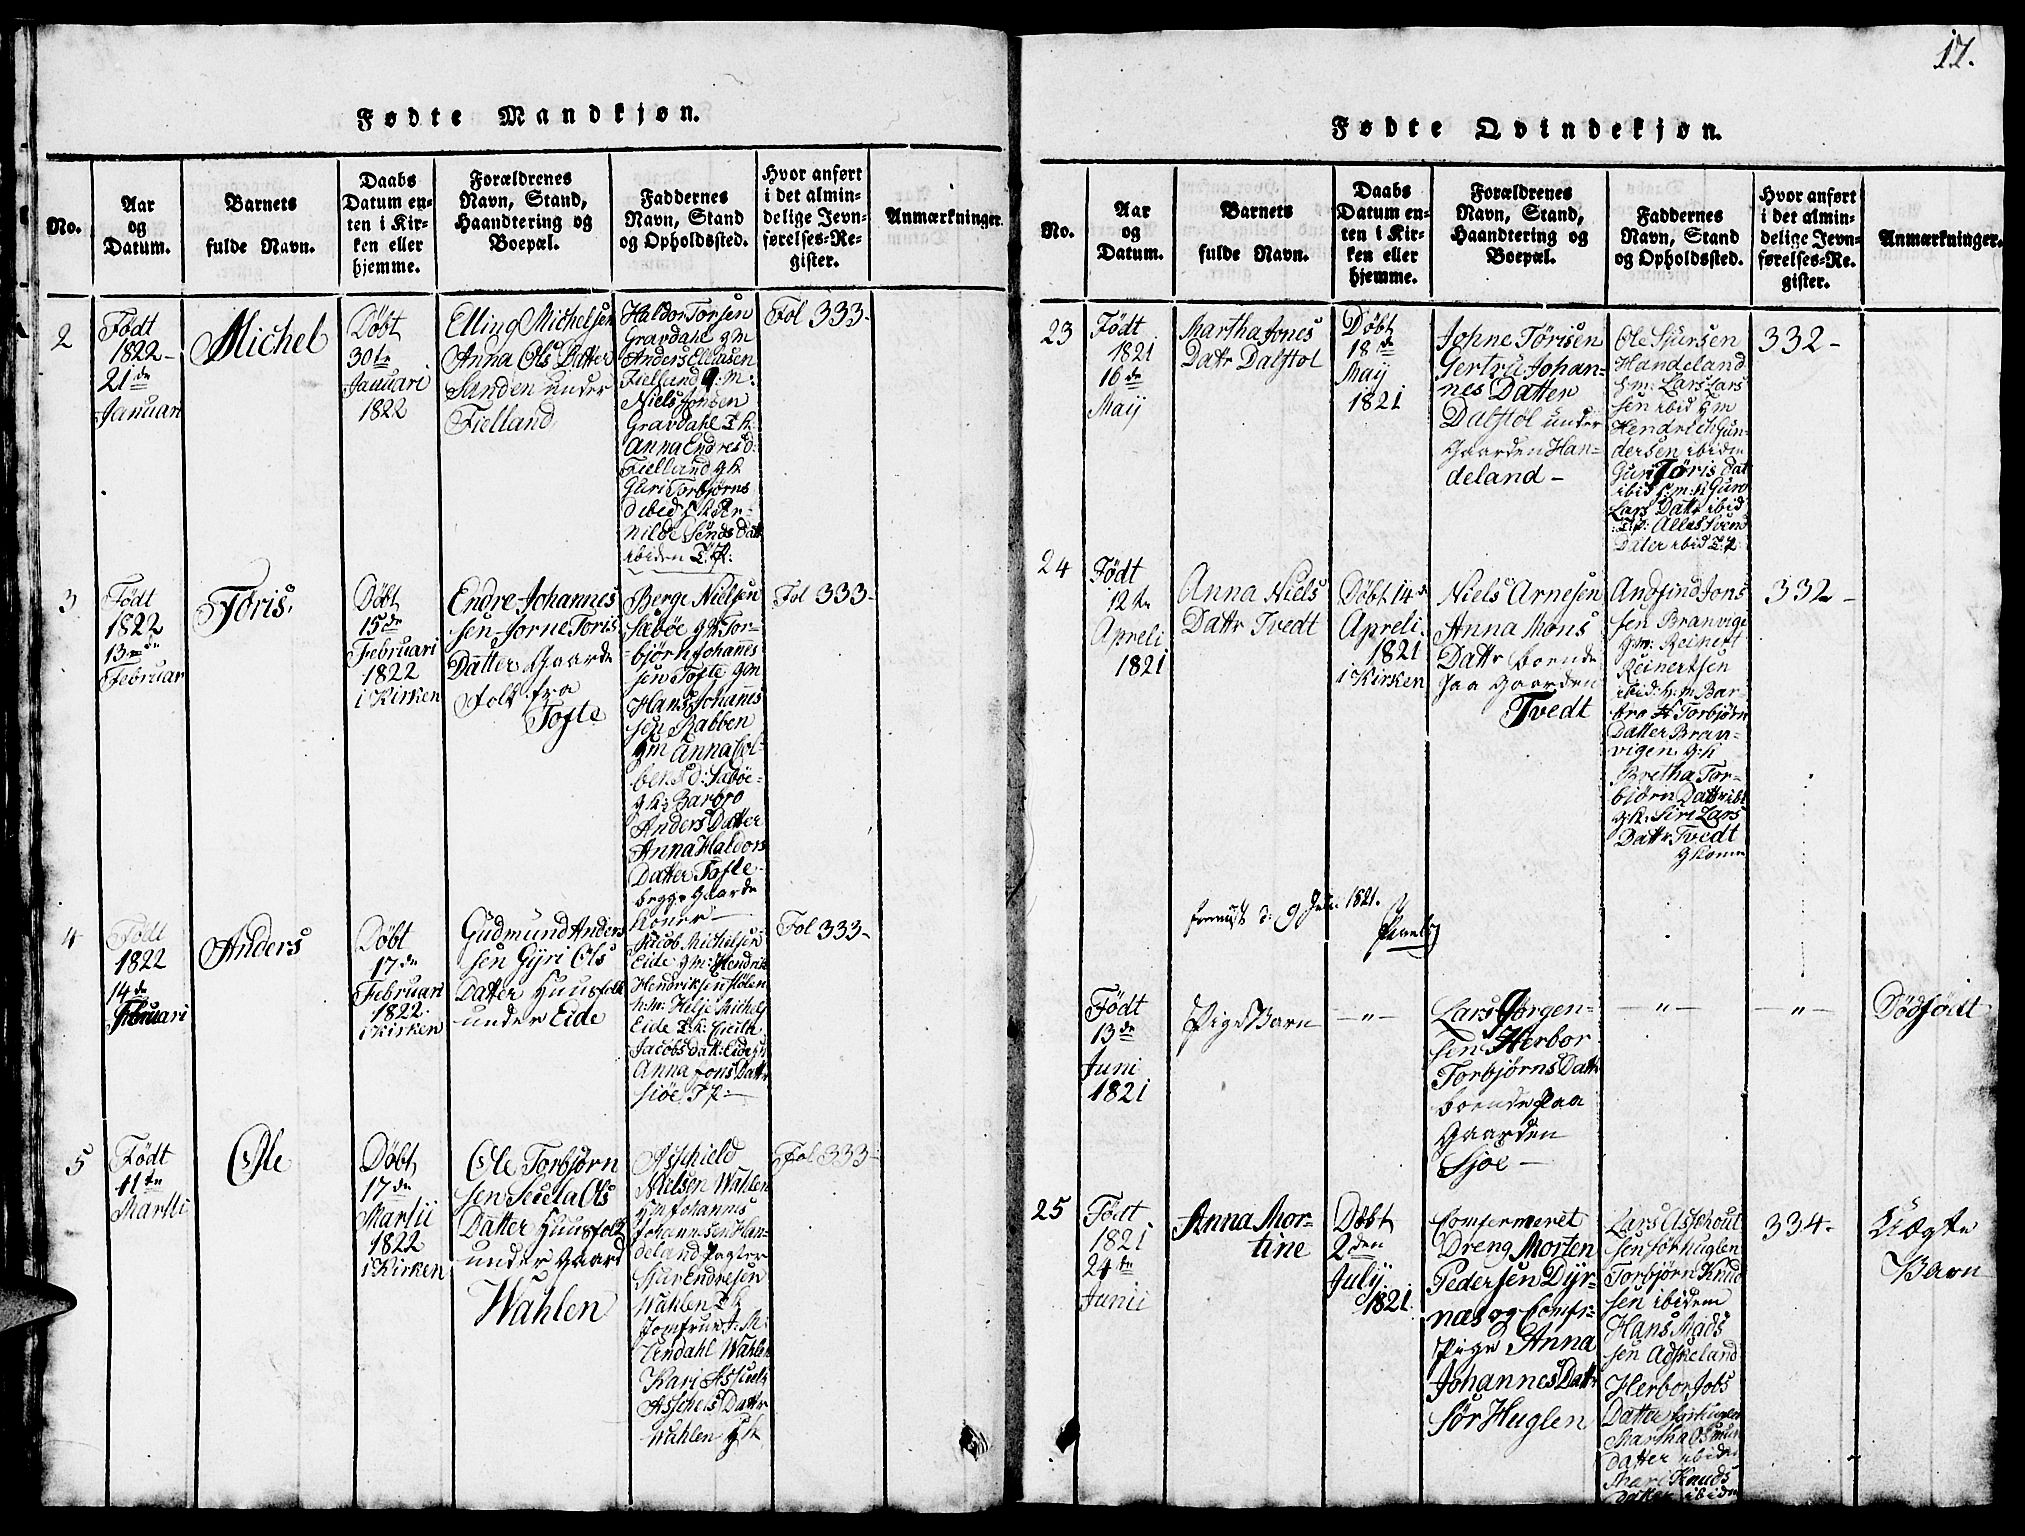 17.
Fødte Mandkjøn.
No.
Aar
og
Datum.
Barnets
fulde Navn.
Daabs
Datum en-
ten i Kir-
ken eller
hjemme.
Forældrenes
Navn, Stand,
Haandtering og
Boepæl.
Faddernes
Navn, Stand
og Opholdssted.
Hvor anført
i det almin-
delige Jevn-
førelses-Re-
gister.
Anmærkninger.
2
Født
1822-
21de
Januari
Michel
Døbt
30te
Januari
1822
Elling Michelsen
Anna Ols Datter
Sanden under
Fielland
Haldor Torsen
Gravdahl gm
Anders Eliasen
Fielland g:m:
Niels Jonsen
Gravdahl T k
Anna Endres d:
Fielland g k
Guri Torbjørns
d ibid
nilde Sends Datt
ibiden T:k:
Fol 333-
3
Født
1822
13de
Februar
Tøris.
Døbt
15de
Februari
1822
i Kirken
Endre Johannes
sen Jorne Toris
Datter Gaards
folk fra
Tofte
Berge Nielsen
Sæbøe gm Tor-
bjørn Johanes
sen Tofte gm
Hans Johannes
sen Rabben
gm Anna Col-
bens d: Sæbøe-
g k: Barbro
Anders Datter
Anna Haldors
Datter Tofte-
begge Gaards
koner-
Fol 333-
4
Født
1822
14de
Februari
Anders
Døbt
17de
Februari
1822.
i Kirken
Gudmund Anders
sen Gyri Ols
Datter Huusfolk
under Eide
Jacob Michelsen
Eide gm: Hendrik
Hendriksen
h:m: Helje Michels
Eide T.k: Cecila
Jacobs datt: Eide
Anna Jons Datt
siøe T k-
Fol 333-
5
Født
11te
Martii
Ole
Døbt
17de
Martii
1822
i Kirken
Ole Torbjørn
sen Seiela Ols
Datter Huusfolk
under Gaard
Wahlen
Asschield
Nielsen Wahlen
h m Johannes
Johannesen Han-
deland
Siur Endresen
Wahlen T k
Jomfrue A: M:
Lindahl Wahlen
Kari
Asschels Datter
Wahlen g k
Fol 333-
Fødte Qvindekjøn.
No.
Aar
og
Datum.
Barnets
fulde Navn.
Daabs
Datum en-
ten i Kir-
ken eller
hjemme.
Forældrenes
Navn, Stand,
Haandtering og
Boepæl.
Faddernes
Navn, Stand
og Opholdssted.
Hvor anført
i det almin-
delige Jevn-
førelses-Re-
gister.
Anmærkninger.
23
Født
1821
16de
Maij
Martha Jones
Dattr Dalstol
Døbt
18de
Maij
1821
Johne Tørisen
Gertru Johan-
nes Datter
Dalstol under
Gaarden Han-
deland-
Ole Sjursen
Handeland
h:m: Lars Lars
sen ibid h m
Hendrich Gun-
dersen ibidem
Guri Tøris Dat
ibid h:m:k Guro
Lars Dattr ibid
T:p: Alles Svens
Dater ibid T:k
332-
24
Født
12te
Apreli
1821
Anna Niels
Dattr Tvedt
Døbt 14de
Apreli
1821
i Kirken
Niels Arnesen
Anna Mons
Dattr boende
paa Gaarden
Tvedt
Andfind Jons
sen Branvige
gm: Reinert
Reinertsen
ibid: h:m Bar-
bro Torbjørn
Datter Bran-
vigen: g:k
Bretha Tor-
biørn Dattr ibt
gk: Siri Lars
Dattr Tvedt
g kone
332-
1821.
Født
13de
Juni
1821
Pige Barn
-"-
Lars Jørgen-
sen Herbor
Torbjørns Dattr
boende paa
Gaarden
Sjoe-
-"-
-"-
Dødfødt
25
Født
1821
24de
Junii
Anna Mor-
tine
Døbt
2den
Julij
1821.
Confermeret
Dreng Morten
Pedersen Dyr-
næs og Comfr:
Pige Anna
Johannes Dattr
Sør Huglen
Lars Asschoul
sen Sørhuglen
Torbjørn Knud
sen ibidem
Hans Mads
sen Adskeland
Herbor Jobs
Datter Sørhuglen
Martha Osmun
datter ibidem
Mari Knuds
Datter ibidem
334-
Uægte
Barn